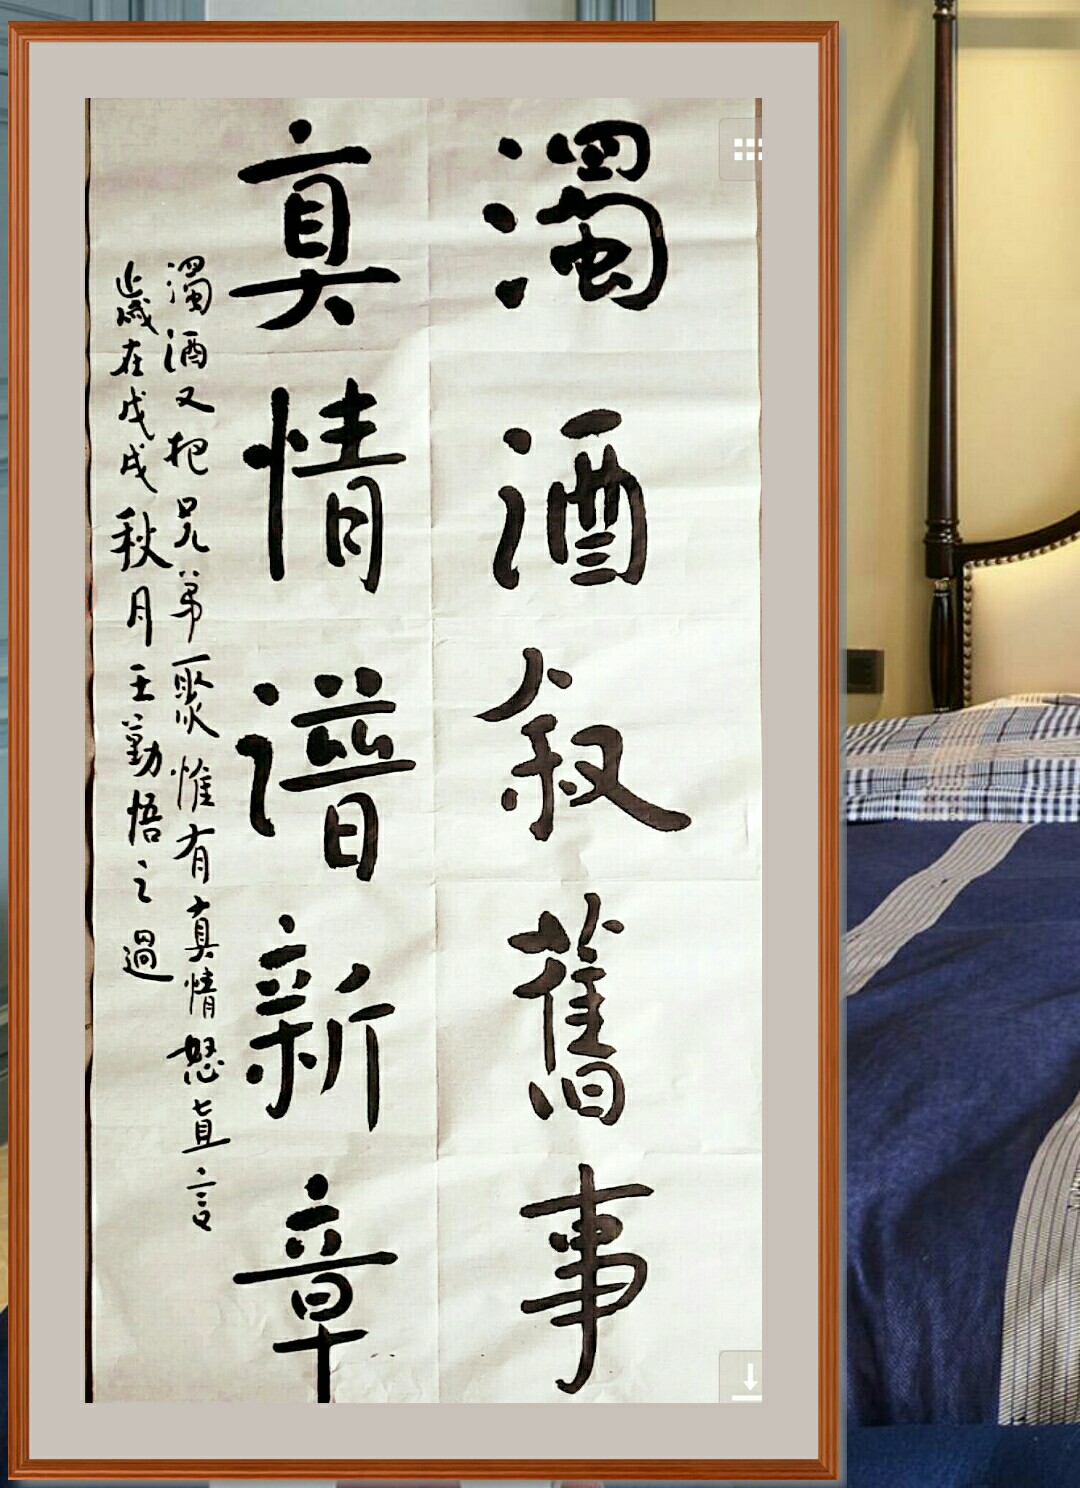 濁酒叙舊事
真情谱新章
濁酒又把兄弟聚惟有真情怒直言
歲在戊戌秋月王勤悟之過